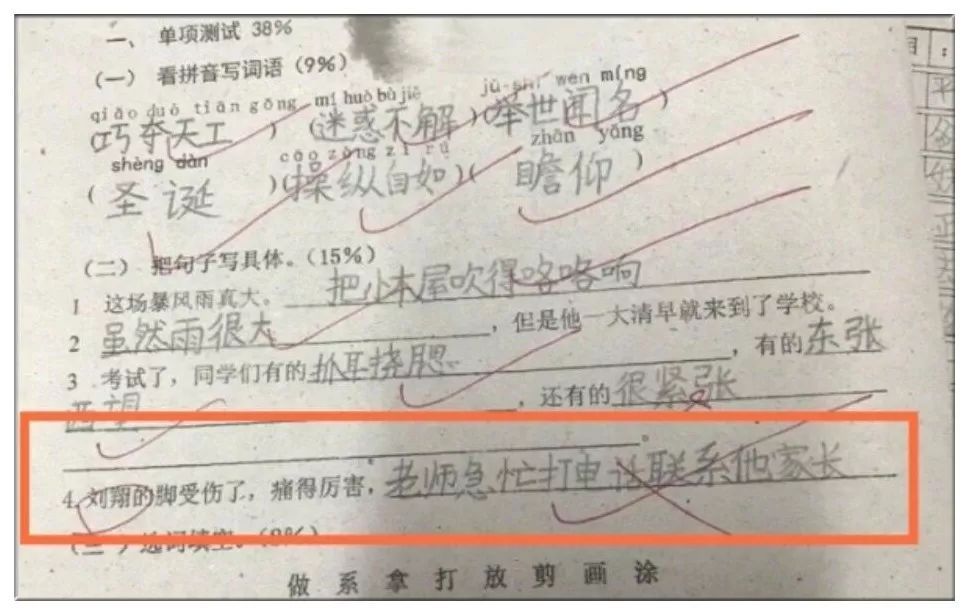 一、 单项测试 38%
（一） 看拼音写词语（9%）
qiǎo duó tiān gōng mí huò bù jiě jǔ shì wén míng
（巧夺天工）（迷惑不解）（举世闻名）
shèng dàn cāo zòng zì rú zhān yǎng
（圣诞）（操纵自如）（瞻仰）
（二） 把句子写具体。（15%）
1 这场暴风雨真大。把小木屋吹得咯咯响
2 虽然雨很大，但是他一大清早就来到了学校。
3 考试了，同学们有的抓耳挠腮，有的东张
西望，还有的很紧张
。
4.刘翔的脚受伤了，痛得厉害，老师急忙打电话联系他家长
（三）选词填空。（8%）
做 系 拿 打 放 剪 画 涂